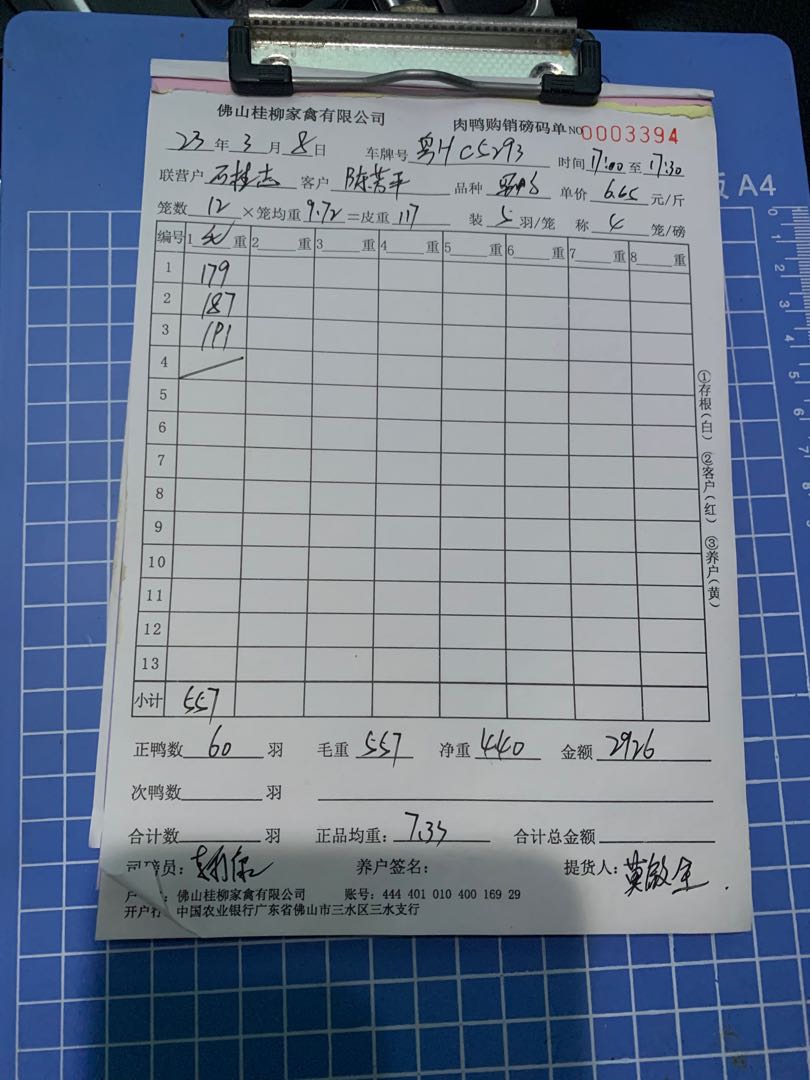 佛山桂柳家禽有限公司 肉鸭购销磅码单 NO 0003394
23年3月8日 车牌号 粤H C5293 时间 17:00 至 17:30
联营户 石桂志 客户 陈芳平 品种 单价 6.65 元/斤
笼数 12 ×笼均重 9.72 =皮重 117 装 5 羽/笼 称 4 笼/磅
编号 1 重 2 重 3 重 4 重 5 重 6 重 7 重 8 重
1 179
2 187
3 191
4
5
6
7
8
9
10
11
12
13
小计 557
①存根(白) ②客户(红) ③养户(黄)
正鸭数 60 羽 毛重 557 净重 440 金额 2926
次鸭数 羽
合计数 羽 正品均重: 7.33 合计总金额
司磅员: 养户签名: 提货人: 莫敏全
户 : 佛山桂柳家禽有限公司 账号: 444 401 010 400 169 29
开户行: 中国农业银行广东省佛山市三水区三水支行
板 A4
0 1 2 3 4 5 6 7 8